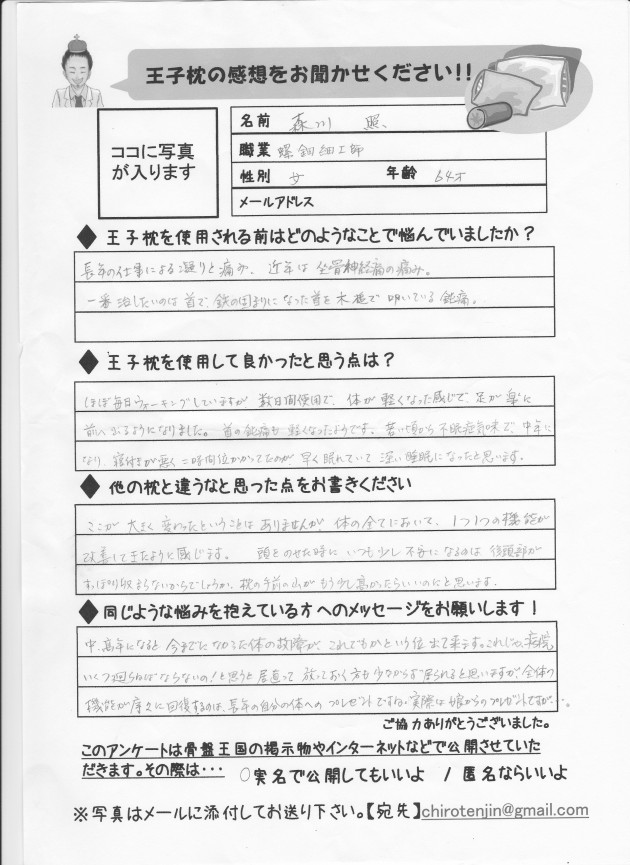 王子枕の感想をお聞かせください!!
ココに写真
が入ります
名前 森川 照
職業 螺鈿細工師
性別 女 年齢 64才
メールアドレス
◆ 王子枕を使用される前はどのようなことで悩んでいましたか？
長年の仕事による凝りと痛み、近年は坐骨神経痛の痛み。
一番治したいのは首で、鉄の固まりになった首を木槌で叩いている鈍痛。
◆ 王子枕を使用して良かったと思う点は？
ほぼ毎日ウォーキングしていますが 数日間使用で、体が軽くなった感じで、足が楽に
前へ出るようになりました。首の鈍痛も軽くなったようです。若い頃から不眠症気味で、中年に
なり、寝付きが悪く二時間位かかってたのが、早く眠れていて深い睡眠になったと思います。
◆ 他の枕と違うなと思った点をお書きください
ここが大きく変わったということはありませんが、体の全てにおいて、1つ1つの機能が
改善してきたように感じます。 頭をのせた時にいつも少し不安になるのは 後頭部が
すっぽり収まらないからでしょうか、枕の手前の山がもう少し高かったらいいのにと思います。
◆ 同じような悩みを抱えている方へのメッセージをお願いします！
中、高年になると今までになかった体の故障が、これでもかという位出て来ます。これじゃ、病院
いくつ回らねばならないの！と思うと居直って放っておく方も少なからず居られると思いますが、全体の
機能が序々に回復するのは、長年の自分の体へのプレゼントですね。実際は娘からのプレゼントですが…。
ご協力ありがとうございました。
このアンケートは骨盤王国の掲示物やインターネットなどで公開させていた
だきます。その際は・・・ ○実名で公開してもいいよ / 匿名ならいいよ
※写真はメールに添付してお送り下さい。【宛先】chirotenjin@gmail.com